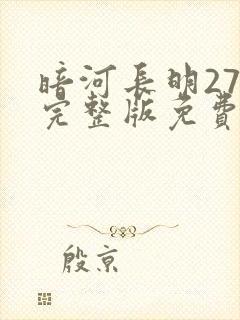 暗河长明27
完整版免费
殷京